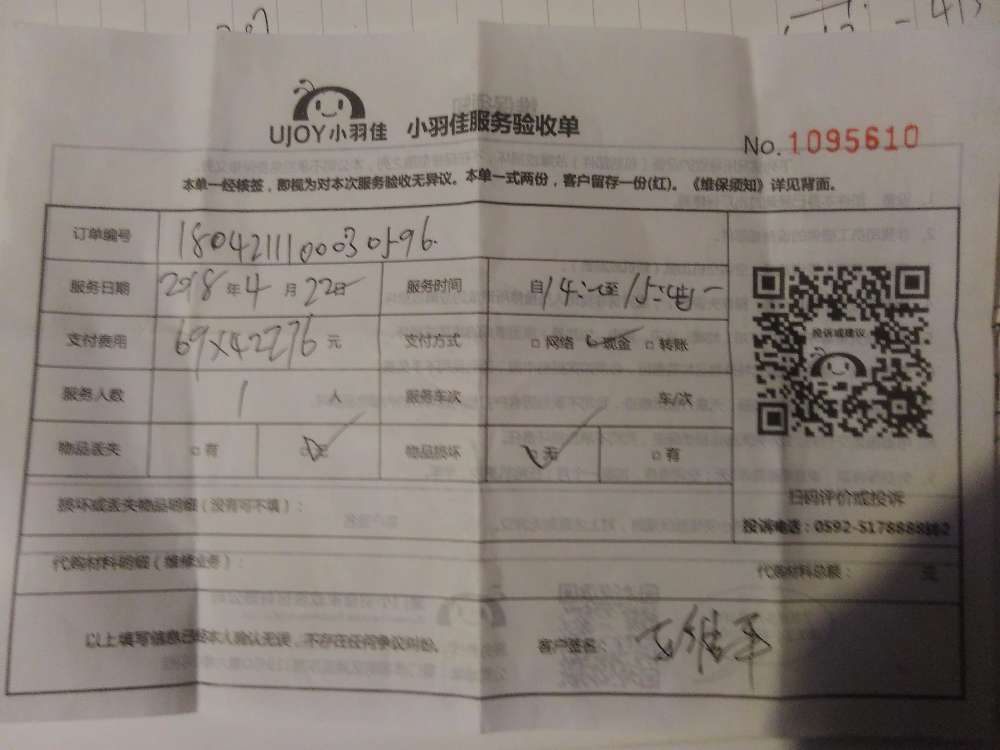 UJOY小羽佳 小羽佳服务验收单
No.1095610
本单一经核签，即视为对本次服务验收无异议。本单一式两份，客户留存一份(红)。《维保须知》详见背面。
订单编号
服务日期 2018年4月22日 服务时间 自14: 至15:
支付费用 69×4=276元 支付方式 □网络 现金 □转账
服务人数 1人 服务车次 车/次
物品丢失 □有 无 物品损坏 无 □有
投诉或建议
扫码评价或投诉
损坏或丢失物品明细（没有可不填）：
投诉电话：0592-5178888
代购材料明细（维修业务）： 代购材料总额： 元
以上填写信息已经本人确认无误，不存在任何争议纠纷。 客户签名：